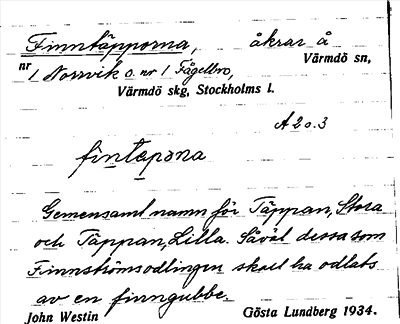 Finntäpporna, åkrar å
Värmdö sn,
nr 1 Norrvik o. nr 1 Fågelbro,
Värmdö skg, Stockholms l.
A 2 o. 3
fintapona
Gemensamt namn för Täppan, Stora
och Täppan, Lilla. Såväl dessa som
Finnströmsodlingen skall ha odlats
av en finngubbe.
John Westin Gösta Lundberg 1934.